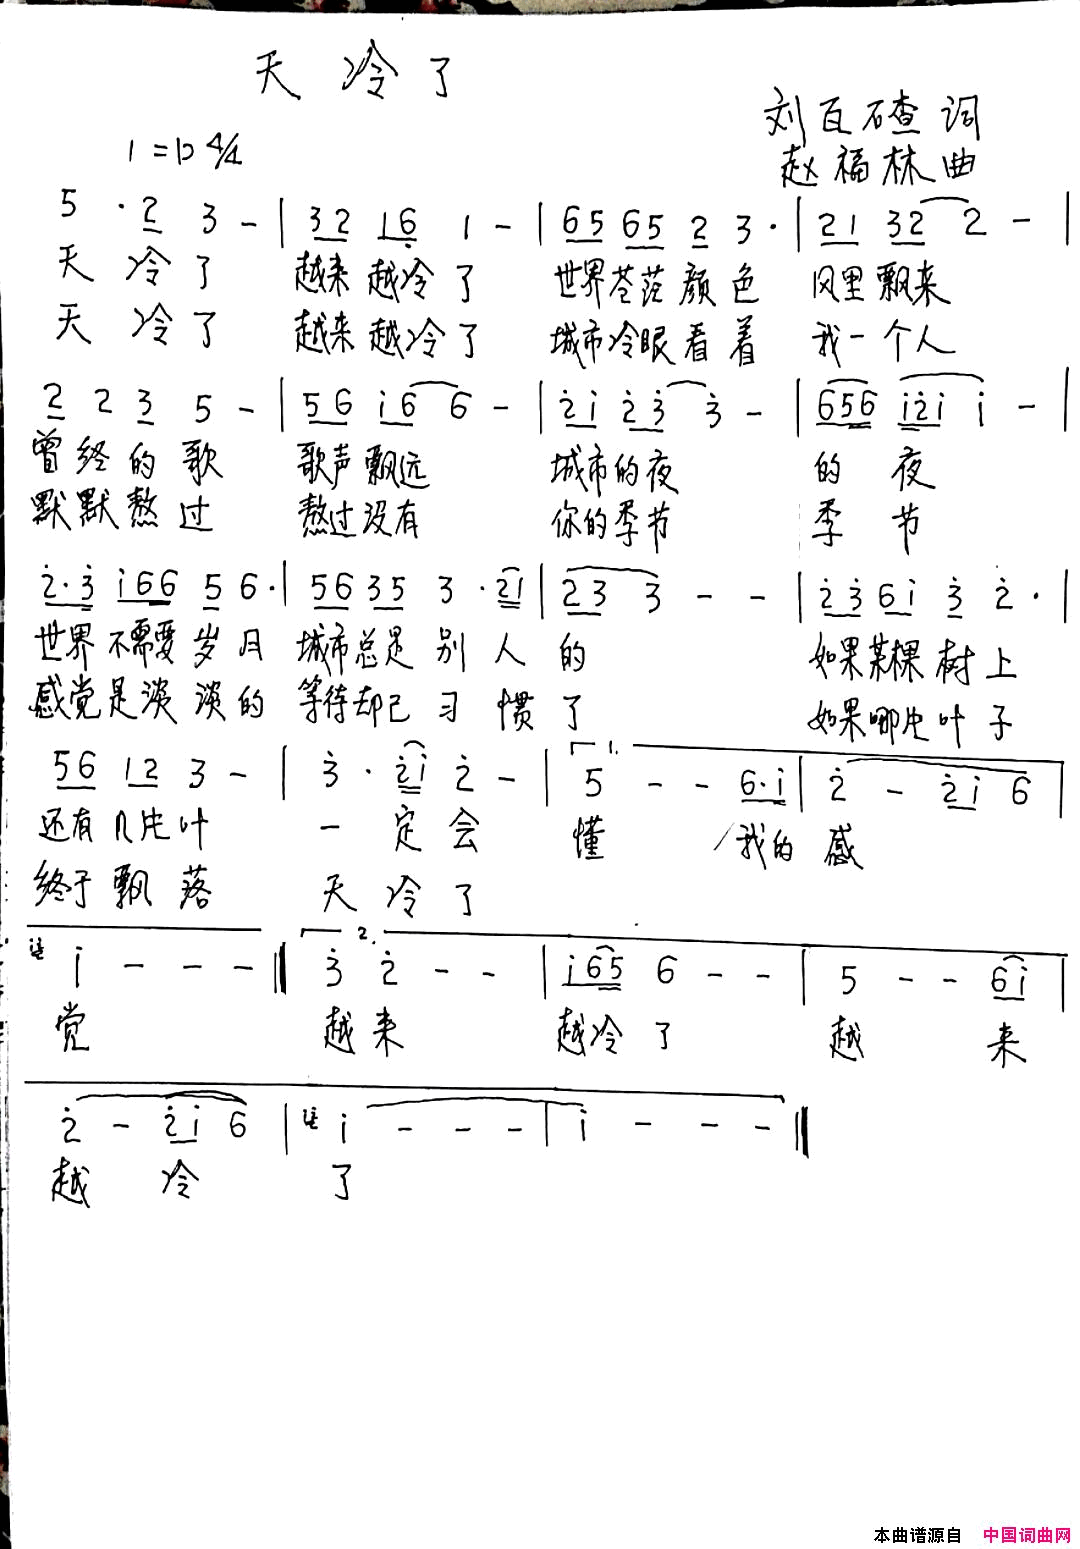 天冷了
刘百碴 词
1=D 4/4
赵福林 曲
5 · 2 3 - | 32 16 1 - | 65 65 2 3 · | 21 32 2 - |
天 冷 了 越来 越冷 了 世界 苍茫 颜 色 风里 飘来
天 冷 了 越来 越冷 了 城市 冷眼 看 着 我一 个人
2 2 3 5 - | 56 i6 6 - | 2i 23 3 - | 656 i2i i - |
曾 经 的 歌 歌声 飘远 城市 的夜 的 夜
默 默 熬 过 熬过 没有 你的 季节 季 节
2·3 i66 5 6 · | 56 35 3 · 2i | 23 3 - - | 23 6i 3 2 · |
世界 不需要 岁 月 城市 总是 别 人 的 如果 某棵 树 上
感觉 是淡 淡 的 等待 却已 习 惯 了 如果 哪片 叶 子
1.
56 12 3 - | 3 · 2i 2 - | 5 - - 6·i | 2 - 2i 6 |
还有 几片 叶 一 定 会 懂 我的 感
终于 飘 落 天 冷 了
2.
i - - - 3 2 - - | i65 6 - - | 5 - - 6i |
觉 越 来 越冷 了 越 来
2 - 2i 6 | i - - - | i - - -
越 冷 了
本曲谱源自 中国词曲网